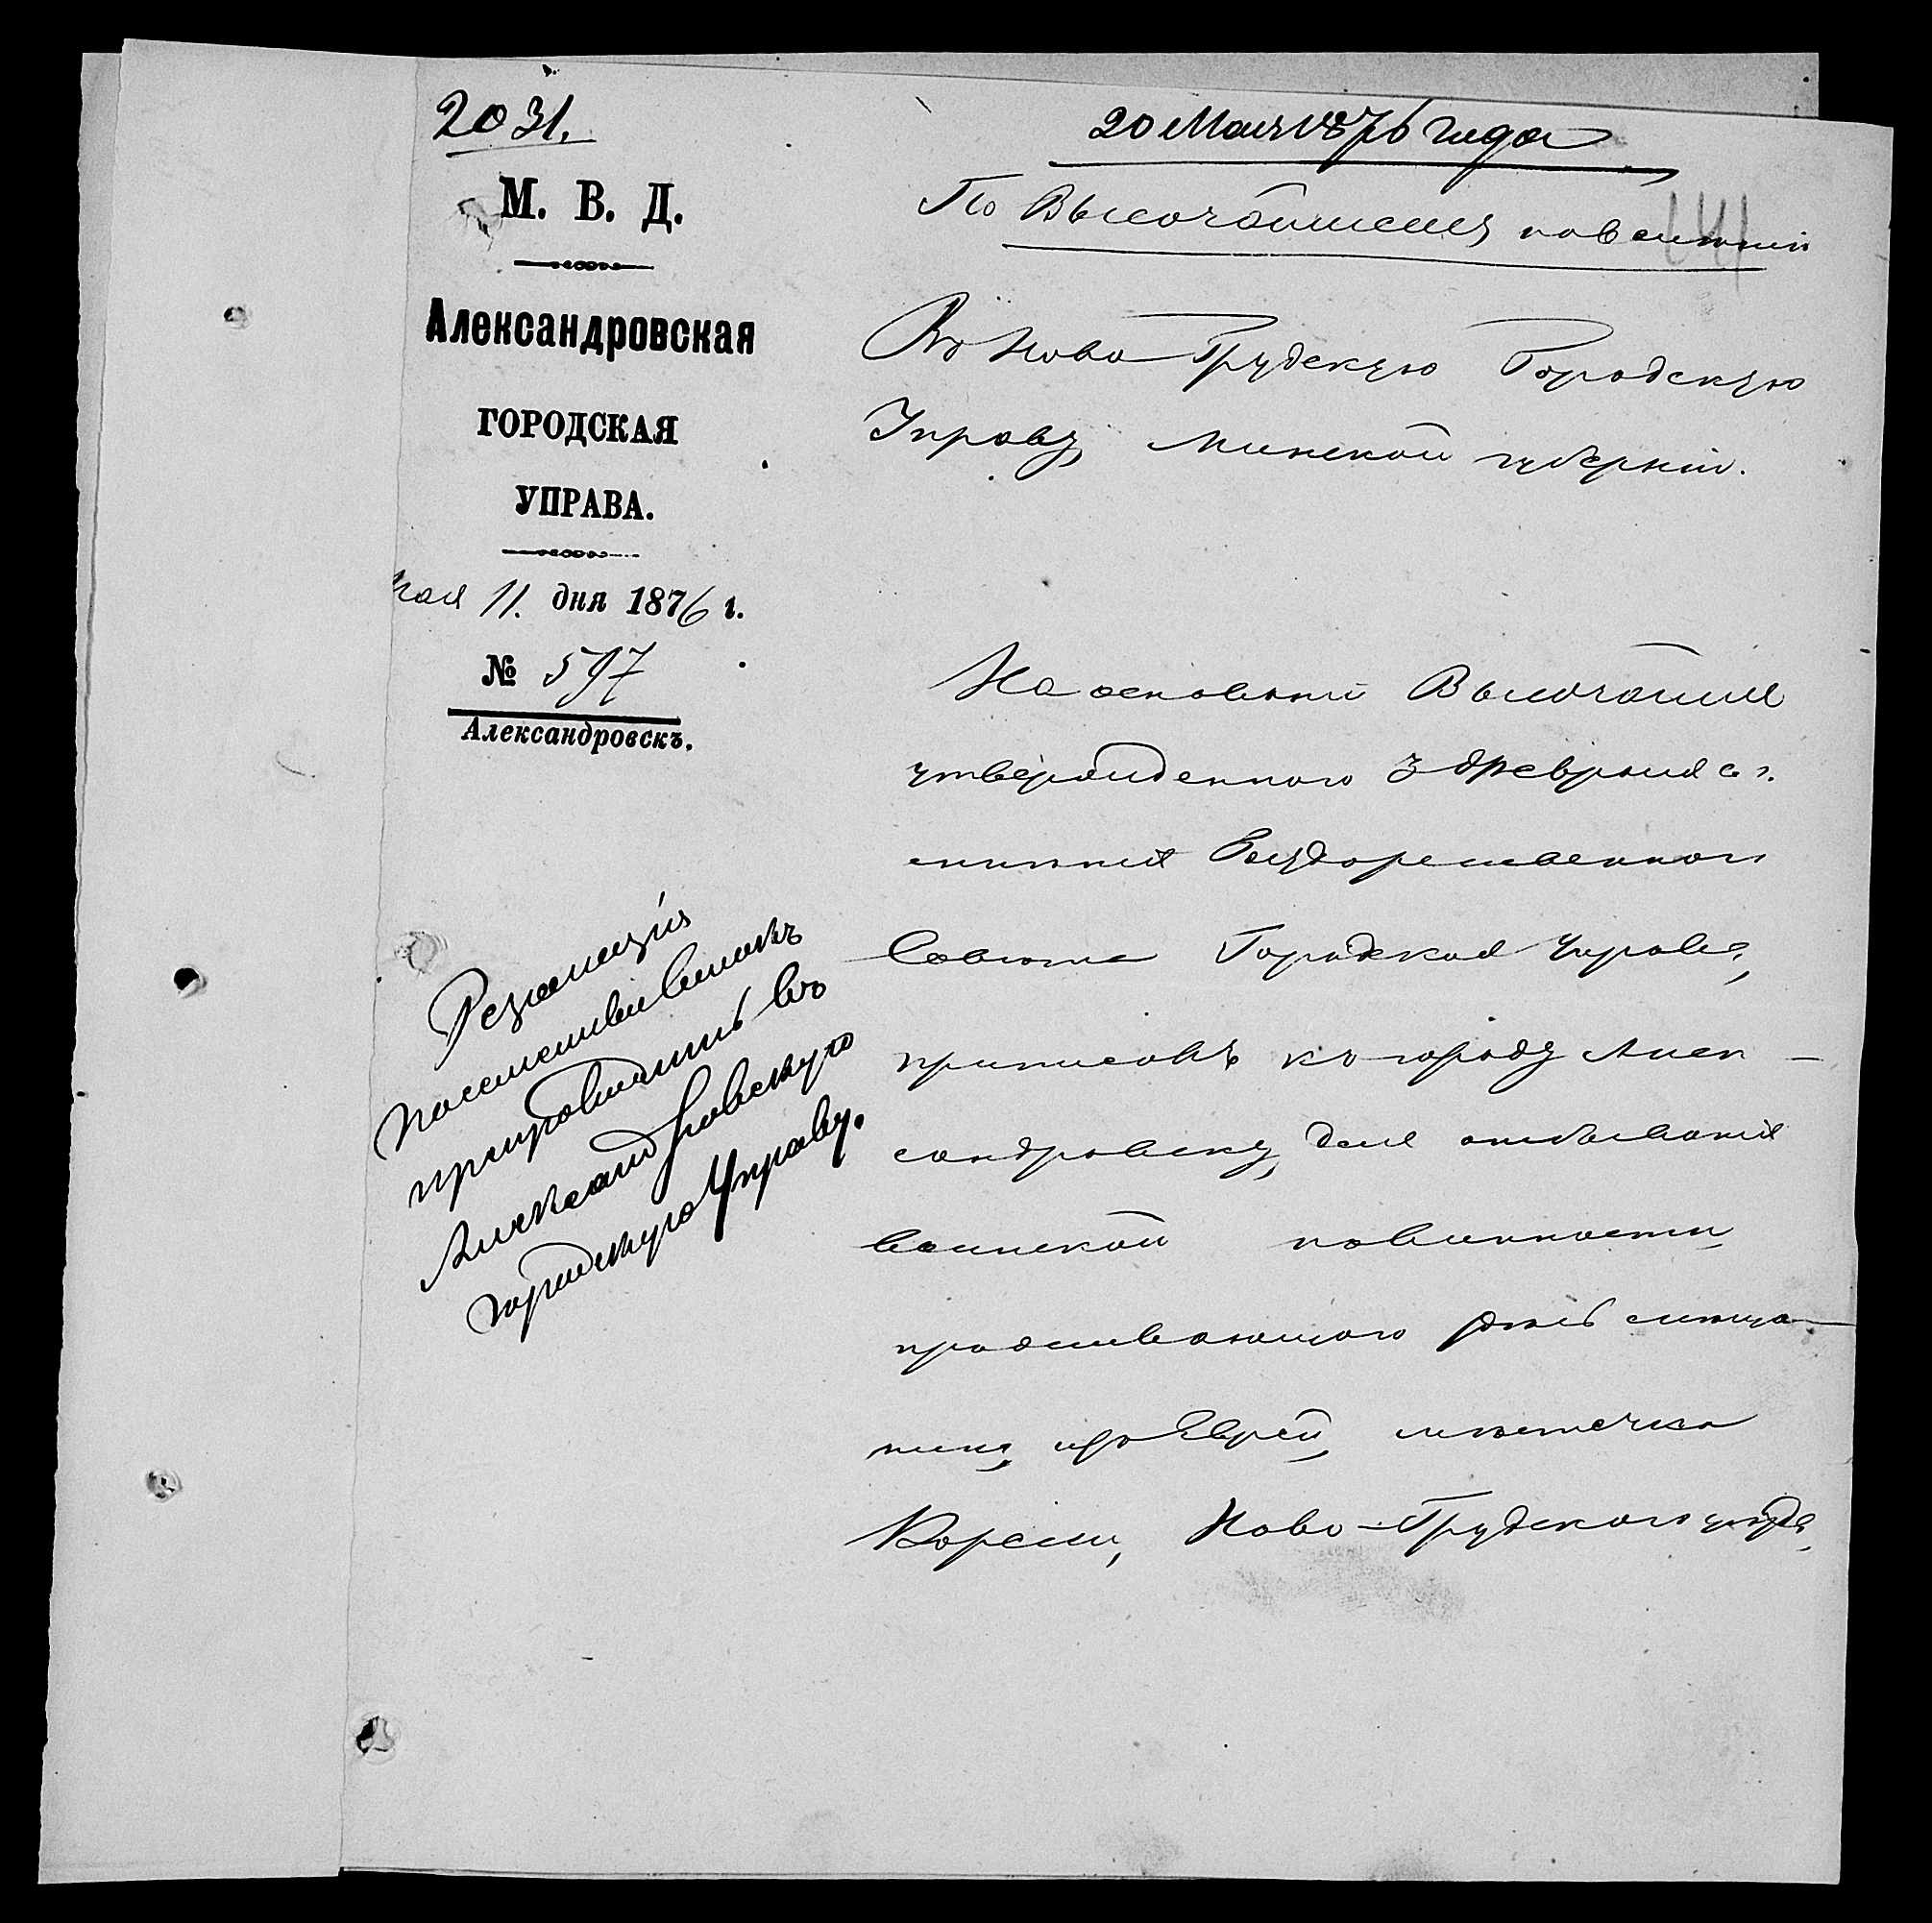 2031.
М. В. Д.
Александровская
ГОРОДСКАЯ
УПРАВА.
Мая 11. дня 1876 г.
№ 597
Александровскъ.
20 Мая 1876 года
По Высочайшему повелѣнію
141
Въ Ново Грудскую Городскую
Управу, Минской губерніи.
На основаніи Высочайше
утвержденного 3 Февраля с. г.
мнѣнія Государственного
Совѣта Городская Управа,
приписавъ къ городу Алек-
сандровску, для отбыванія
воинской повинности,
проживающаго здѣсь мѣща-
нина, изъ Еврей, мѣстечка
Корели, Ново-Грудского уѣзда,
Резолюція
городскую Управу.
Александровскую
препроводить въ